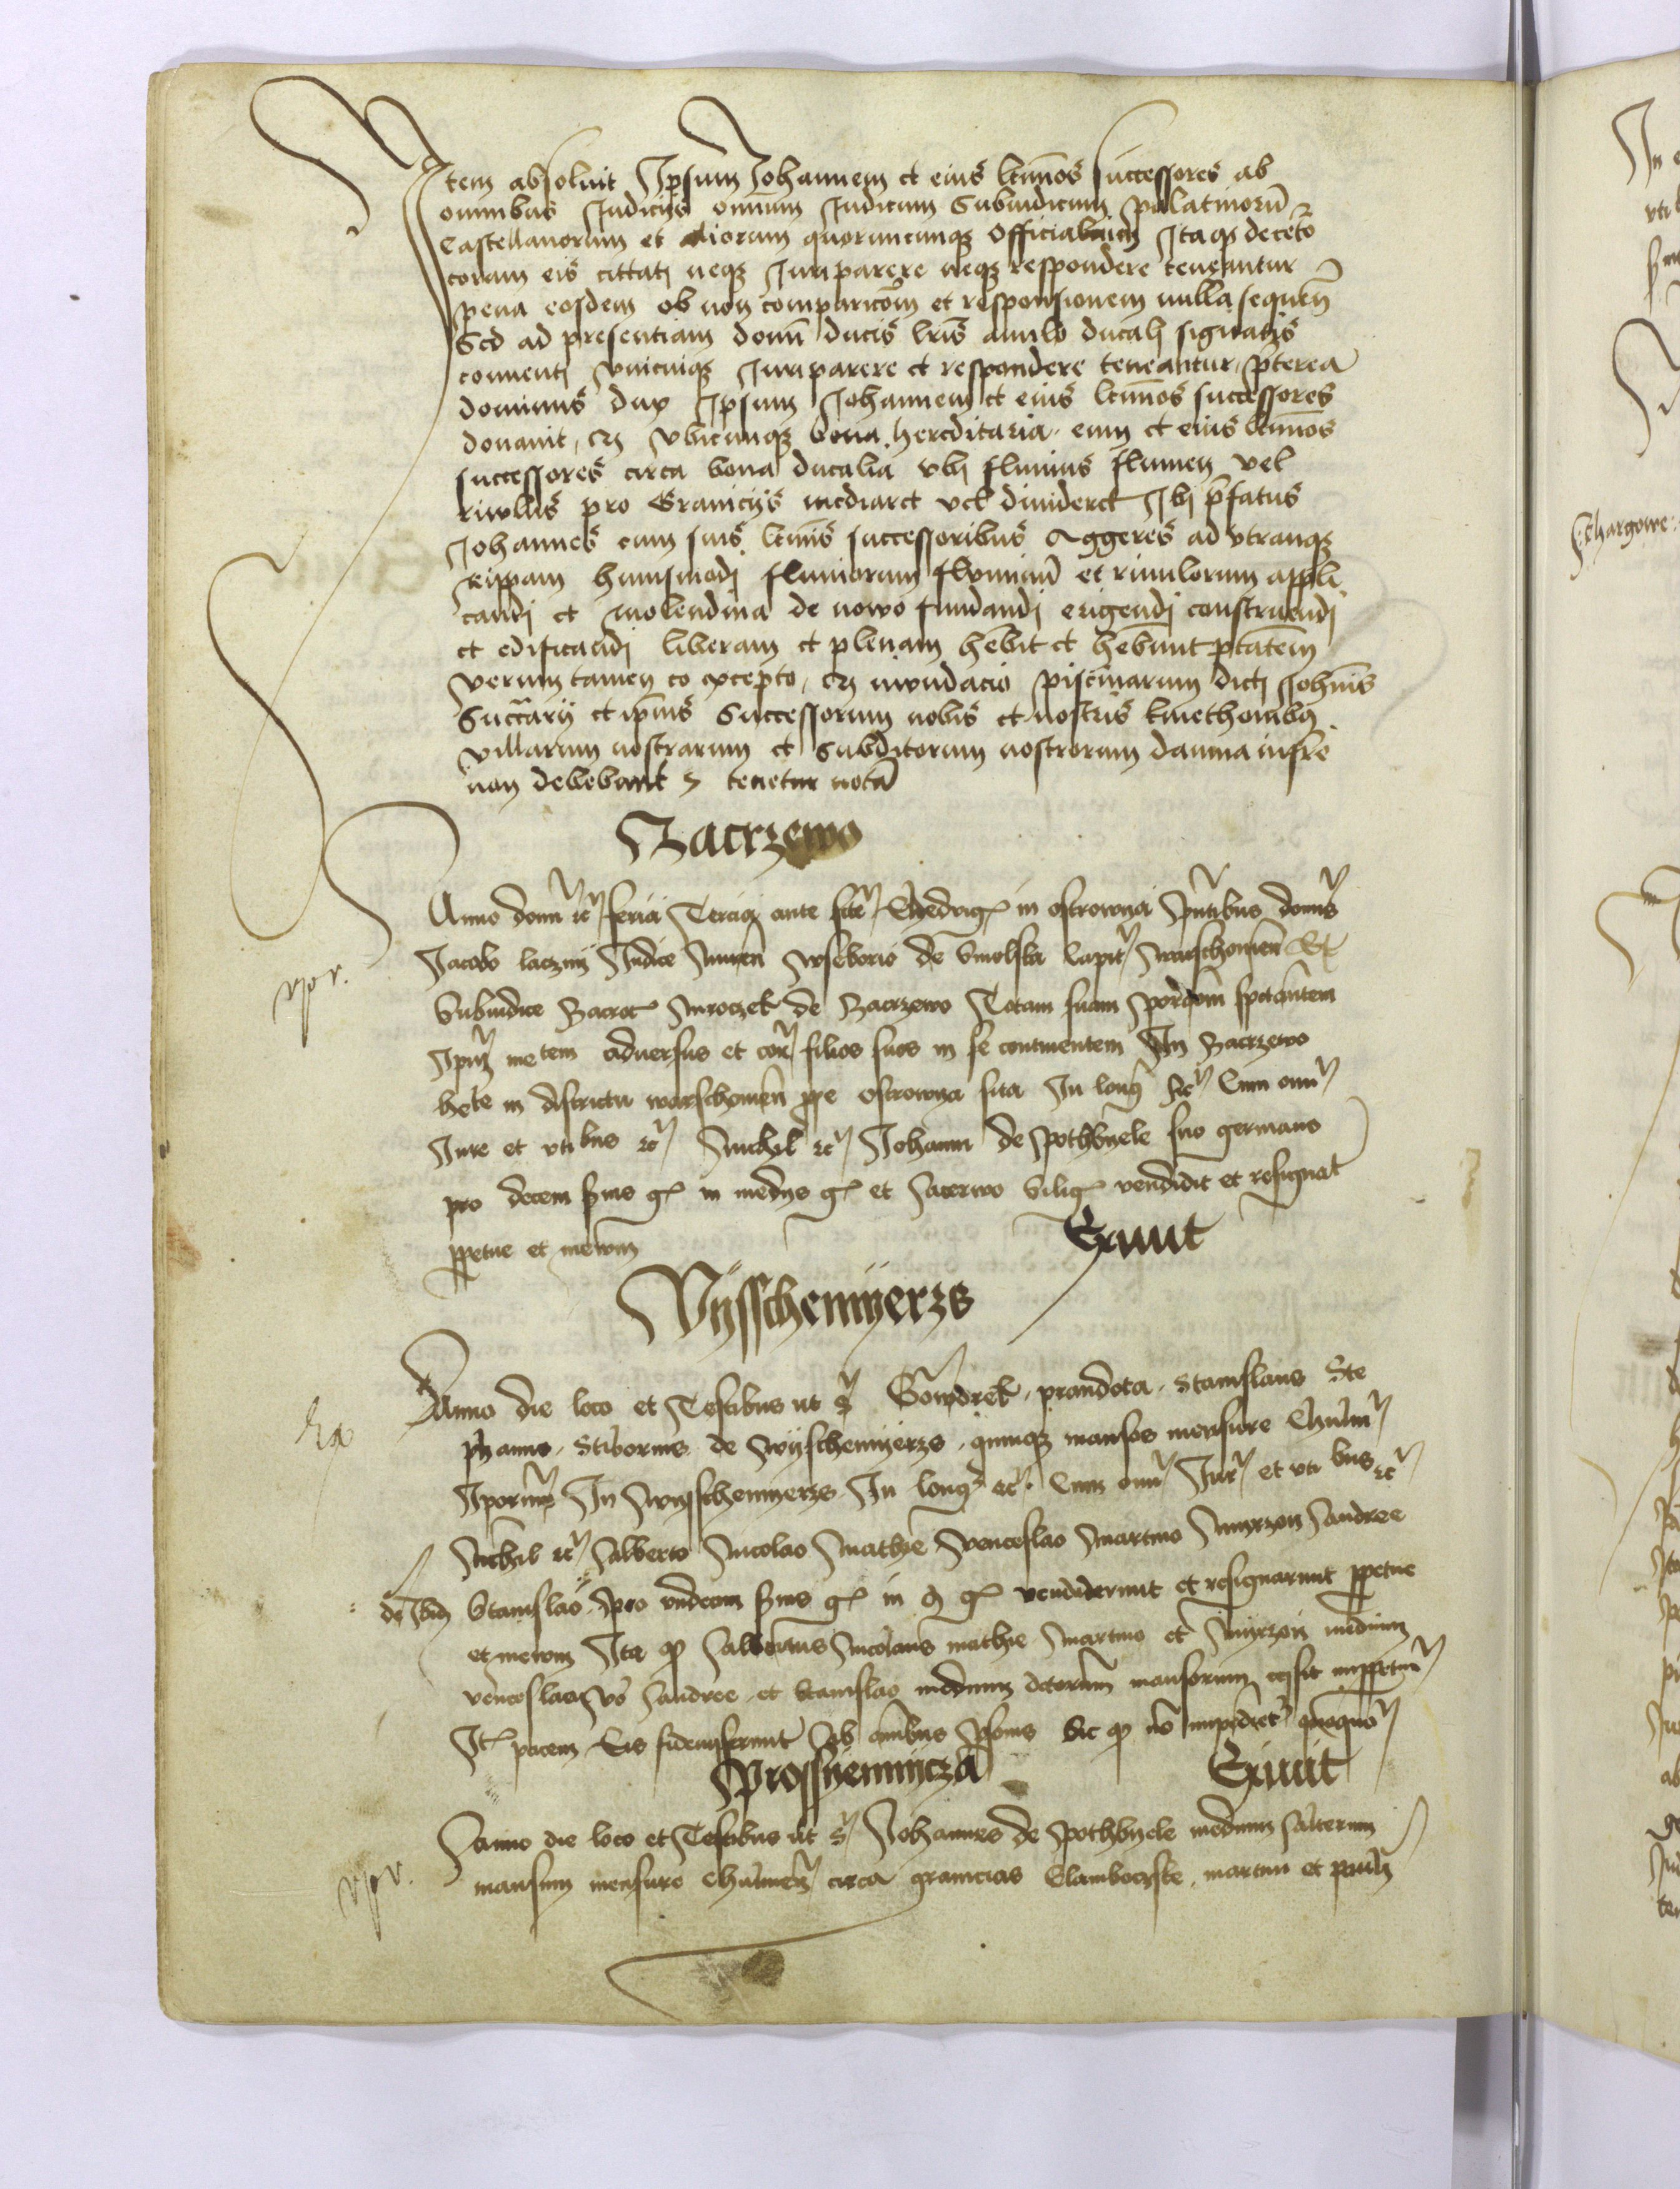 Item absoluit Ipsum Johannem et eius ltimos successores ab
omnibus Judicijs omnium Judicum Subiudicum palatinorum
Castellanorum et aliorum quorumcunque Officialium Itaque decetero
coram eis cittati neque Iuri parere neque respondere teneantur
pena eosdem ob non comparicōm et responsionem nulla sequen
Sed ad presentiam domi ducis lris anulo ducali signatis
conuenti vnicuique Iuri parere et respondere teneantur, pterea
dominus dux Ipsum Johannem et eius ltimos successores
donauit, vbicunque bona hereditaria eum et eius ltimos
successores circa bona ducalia vbi fluuius flumen vel
riwlus pro Granicijs mediaret vel diuideret Ibi pfatus
Johannes cum suis ltimis successoribus Aggeres ad vtranque
Rippam huiusmodi fluuiorum flvminū et riuulorum appli
candi et molendina de nowo fundandi erigendi construendi
et edificandi liberam et plenam hēbit et hēbunt ptatem
verum tamen eo excepto, inundacio piscinarum dicti Johnis
Succarij et ipius Successorum nobis et nostris kmethonibus
villarum nostrarum et Subditorum nostrorum damna inferre
non debebunt tenetur nota
Zacrzewo
Anno domi etc feria Tercia ante festum Hedvigis in ostrowya pntibus domis
vpr.
Jacobo laczny Judice Nuren wseborio de Smolska Capit warschouien Et
Subiudice Zacroc Mroczek de Zacrzewo Totam suam porcōm spectantem
Ipum metem aduersus et contra filios suos in se continentem In Zacrzewo
hēte in districtu warschouien ppe ostrowya sita In long etc Cum omni
Jure et vti bus etc Nichil etc Johanni de pothbyele suo germano
pro decem sexs gr in medys gr et Siligi vendidit et resignat
ppetue et in ewm
Exiuit
Wysschemyerzs
Anno die loco et Testibus ut s Gowdrek, prandota, Stanislaus Ste
phanus, Stiborius de wyschemyerzs, quinque mansos mensure Chulmen
Iporum In wysschemyerzs In long etc Cum omni Jure et vti bus etc
Nichil etc Alberto Nicolao Mathie Venceslao Martino Myrzon Andree
de Ibidem Stanislao pro vndecim sexs gr in gr vendiderunt et resignarunt ppetue
et in ewm Ita quod Albertus Nicolaus mathie Martino et Myrzon medium
venceslao vo Andree et Stanislao medium mansorum cessit
Itaque pacem Eis fideiusserunt ab omibus psonis Sic quod no impediet quoquo
prossyenycza
Exiuit
Anno die loco et Testibus ut s Johannes de pothbyele medium Alterum
vpr.
mansum mensure Chulmen circa granicias Glamboczske, martini et pauli
Schargowe